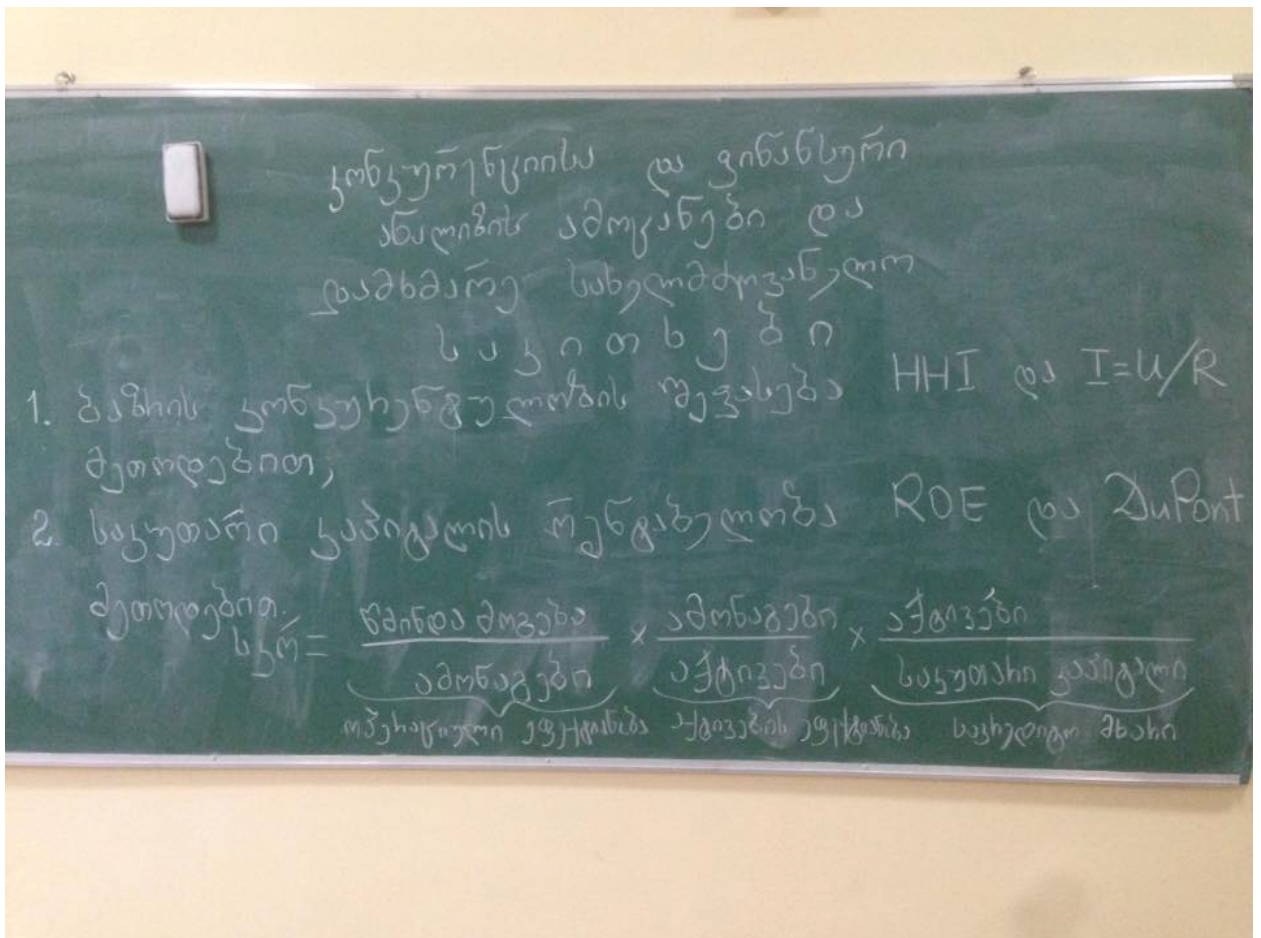 კონკურენციისა და ფინანსური
ანალიზის ამოცანები და
დამხმარე სახელმძღვანელო
საკითხები
1. ბაზრის კონკურენტულობის შეფასება HHI და I=U/R
მეთოდებით,
2. საკუთარი კაპიტალის რენტაბელობა ROE და DuPont
მეთოდებით.
სკრ = წმინდა მოგება / ამონაგები × ამონაგები / აქტივები × აქტივები / საკუთარი კაპიტალი
ოპერაციული ეფექტიანობა აქტივების ეფექტიანობა საკრედიტო მხარი